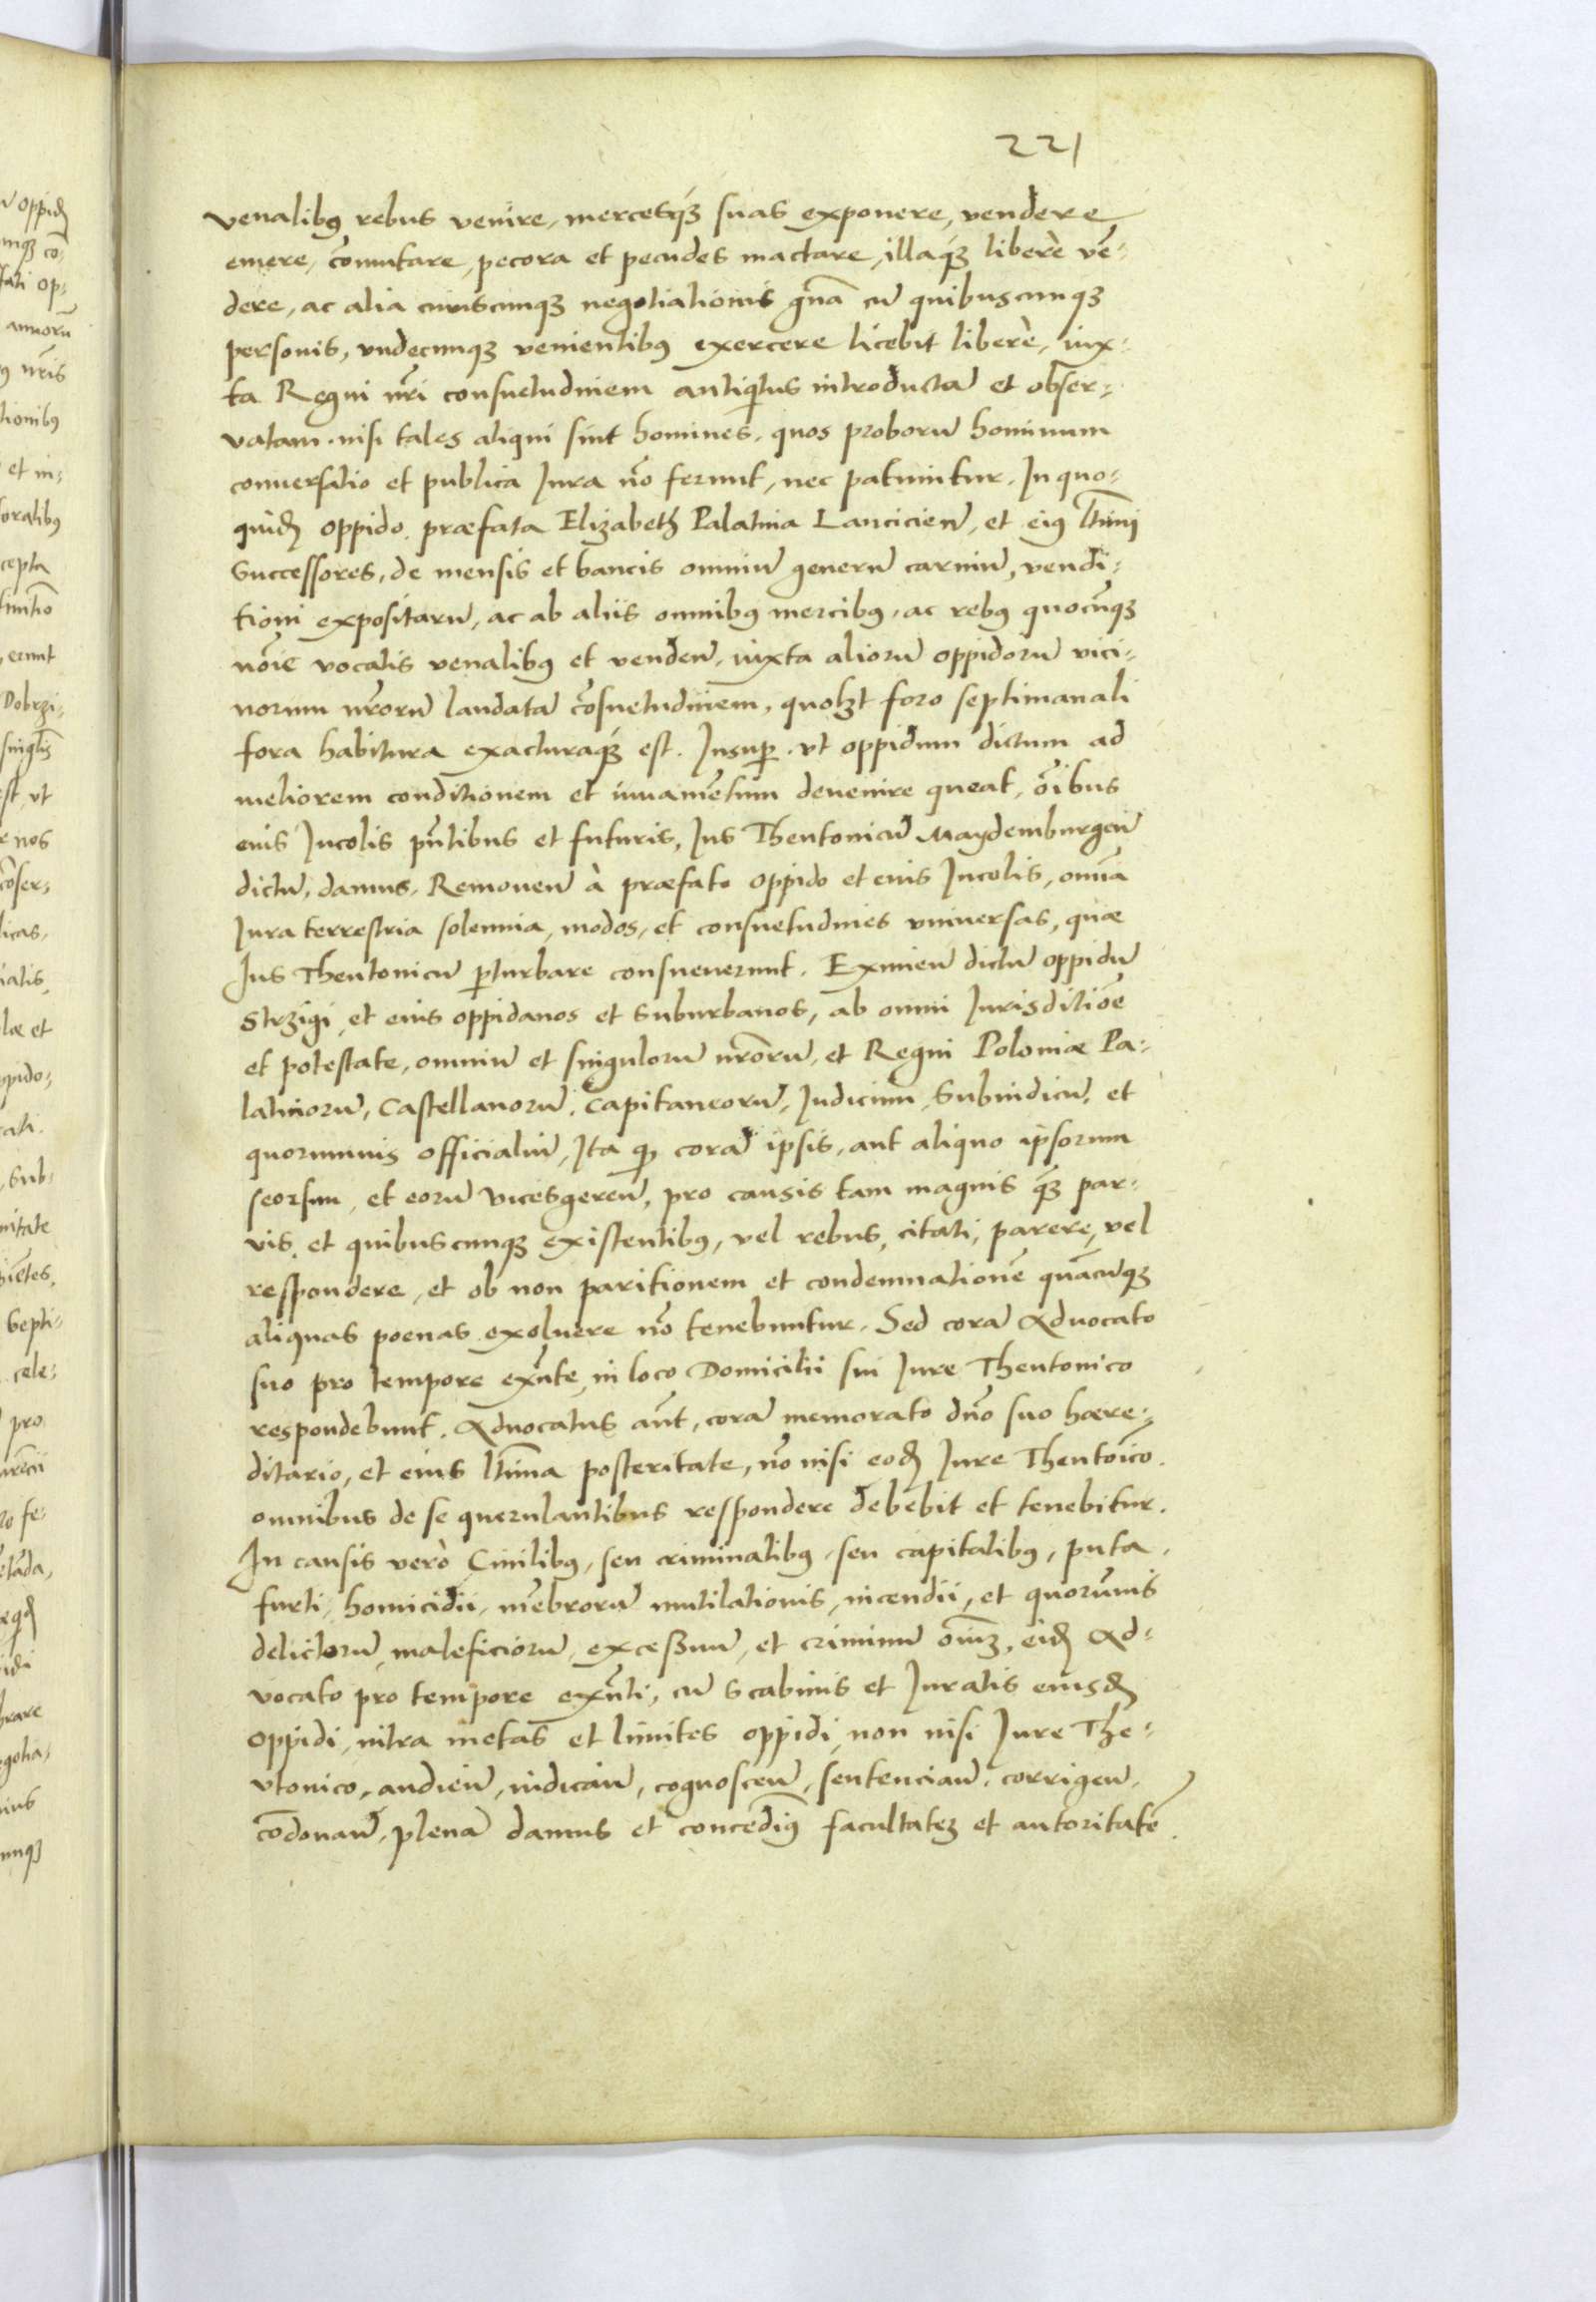 221
venalibꝰ rebus venire, mercesqꝫ suas exponere, vendere
emere, com̃utare, pecora et pecudes mactare, illaqꝫ liberè vē-
dere, ac alia cuiuscunqꝫ negotiationis gn̄a cū quibuscunqꝫ
personis, vndecunqꝫ venientibꝰ exercere licebit liberè, iux-
ta Regni nr̃i consuetudinem antiq̃itus introductā et obser-
vatam. nisi tales aliqui sint homines, quos proborū hominum
conuersatio et publica Jura nō ferunt, nec patiuntur. In quo-
quidē oppido præfata Elizabeth Palatina Lancicien̄, et eiꝰ ltīmi
Successores, de mensis et bancis omniū generū carniū, vendi-
tioni expositarū, ac ab aliis omnibꝰ mercibꝰ, ac rebꝰ quocūqꝫ
nōie vocatis venalibꝰ et venden̄, iuxta aliorū oppidorū vici-
norum nr̃orū laudatā cōsuetudinem, quolꝫt foro septimanali
fora habitura exacturaqꝫ est. Insuꝑ vt oppidum dictum ad
meliorem conditionem et iuuamētum deuenire queat, ōibus
eius Jncolis pn̄tibus et futuris, Jus Theutonicū Maydemburgen̄
dictū, damus, Remouen̄ à præfato oppido et eius Jncolis, omīa
Jura terrestria solennia, modos, et consuetudines vniuersas, quæ
Jus Theutonicū ꝑturbare consueuerunt. Eximen̄ dictū oppidū
Strzigi, et eius oppidanos et suburbanos, ab omni Jurisditiōe
et potestate, omniū et singulorū nr̃orū, et Regni Poloniæ Pa-
latinorū, Castellanorū, Capitaneorū, Judicum, Subiudicū, et
quorumuis officialiū, Ita qꝫ corā ipsis, aut aliquo ipsorum
seorsim, et eorū vicesgeren̄, pro causis tam magnis qꝫ par-
vis, et quibuscunqꝫ existentibꝰ, vel rebus, citati, parere, vel
respondere, et ob non paritionem et condemnationē quācūqꝫ
aliquas poenas exoluere nō tenebuntur. Sed corā Aduocato
suo pro tempore exn̄te, in loco Domicilii sui Jure Theutonico
respondebunt. Aduocatus aūt, corā memorato dn̄o suo hære-
ditario, et eius ltīma posteritate, nō nisi eodē Jure Theutoīco.
omnibus de se querulantibus respondere debebit et tenebitur.
In causis verò Ciuilibꝰ, seu criminalibꝰ, seu capitalibꝰ, puta,
furti, homicidii, mēbrorū mutilationis, incendii, et quorūuis
delictorū, maleficiorū, exceßuū, et criminū oīuꝫ, eidē Ad-
vocato pro tempore exn̄ti, cū Scabinis et Juratis eiusdē
oppidi, intra metas et limites oppidi, non nisi Jure The-
vtonico, audien̄, iudican̄, cognoscen̄, sentencian̄, corrigen̄,
cōdonan̄, plenā damus et concedimꝰ facultateꝫ et autoritatē.